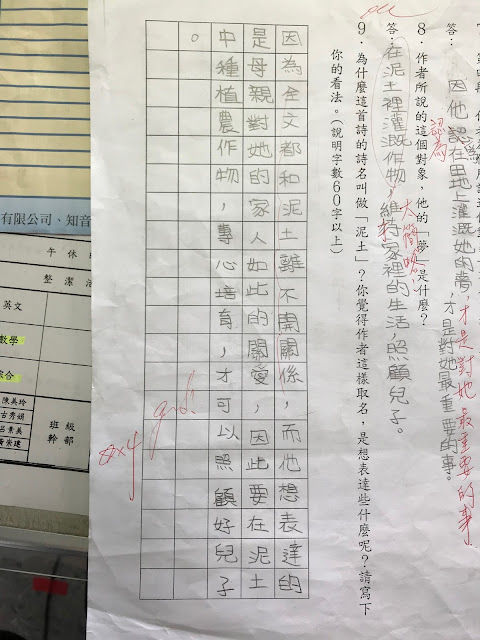 答:因他認為在田地上灌溉她的夢,才是對她最重要的事。
認為
才是對她最重要的事
8．作者所說的這個對象，他的「夢」是什麼？
答:在泥土裡灌溉作物,維持家裡的生活,照顧兒子。
太簡略
9．為什麼這首詩的詩名叫做「泥土」？你覺得作者這樣取名，是想表達些什麼呢？請寫下
你的看法。（說明字數60字以上）
因為全文都和泥土離不開關係,而他想表達的
是母親對她的家人如此的關愛,因此要在泥土
中種植農作物,專心培育,才可以照顧好兒子
。
good!
8x4
有限公司、知音
午休
整潔
英文
數學
綜合
陳美玲
古秀娟
呂素美
黃崇建
班級
幹部